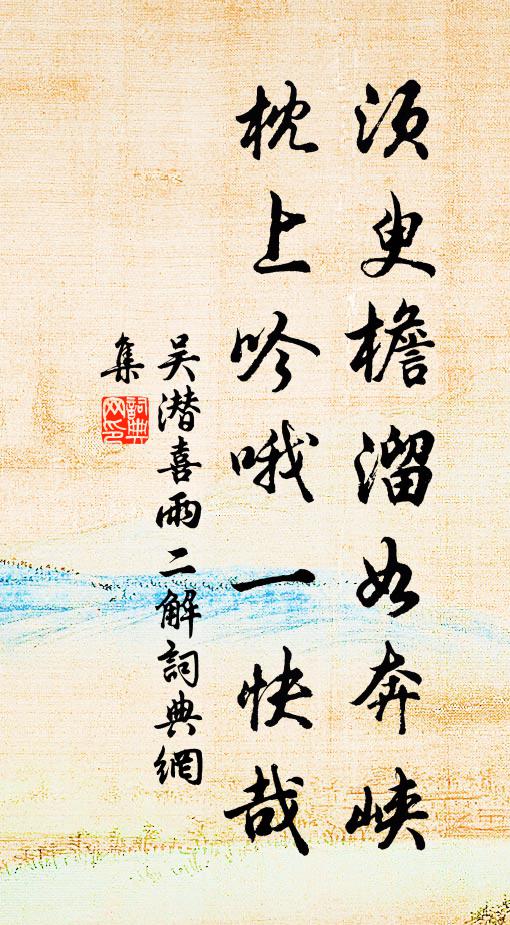 须臾檐溜如奔峡
枕上吟哦一快哉
吴潜喜雨二解詞典網
集
詞典
网印